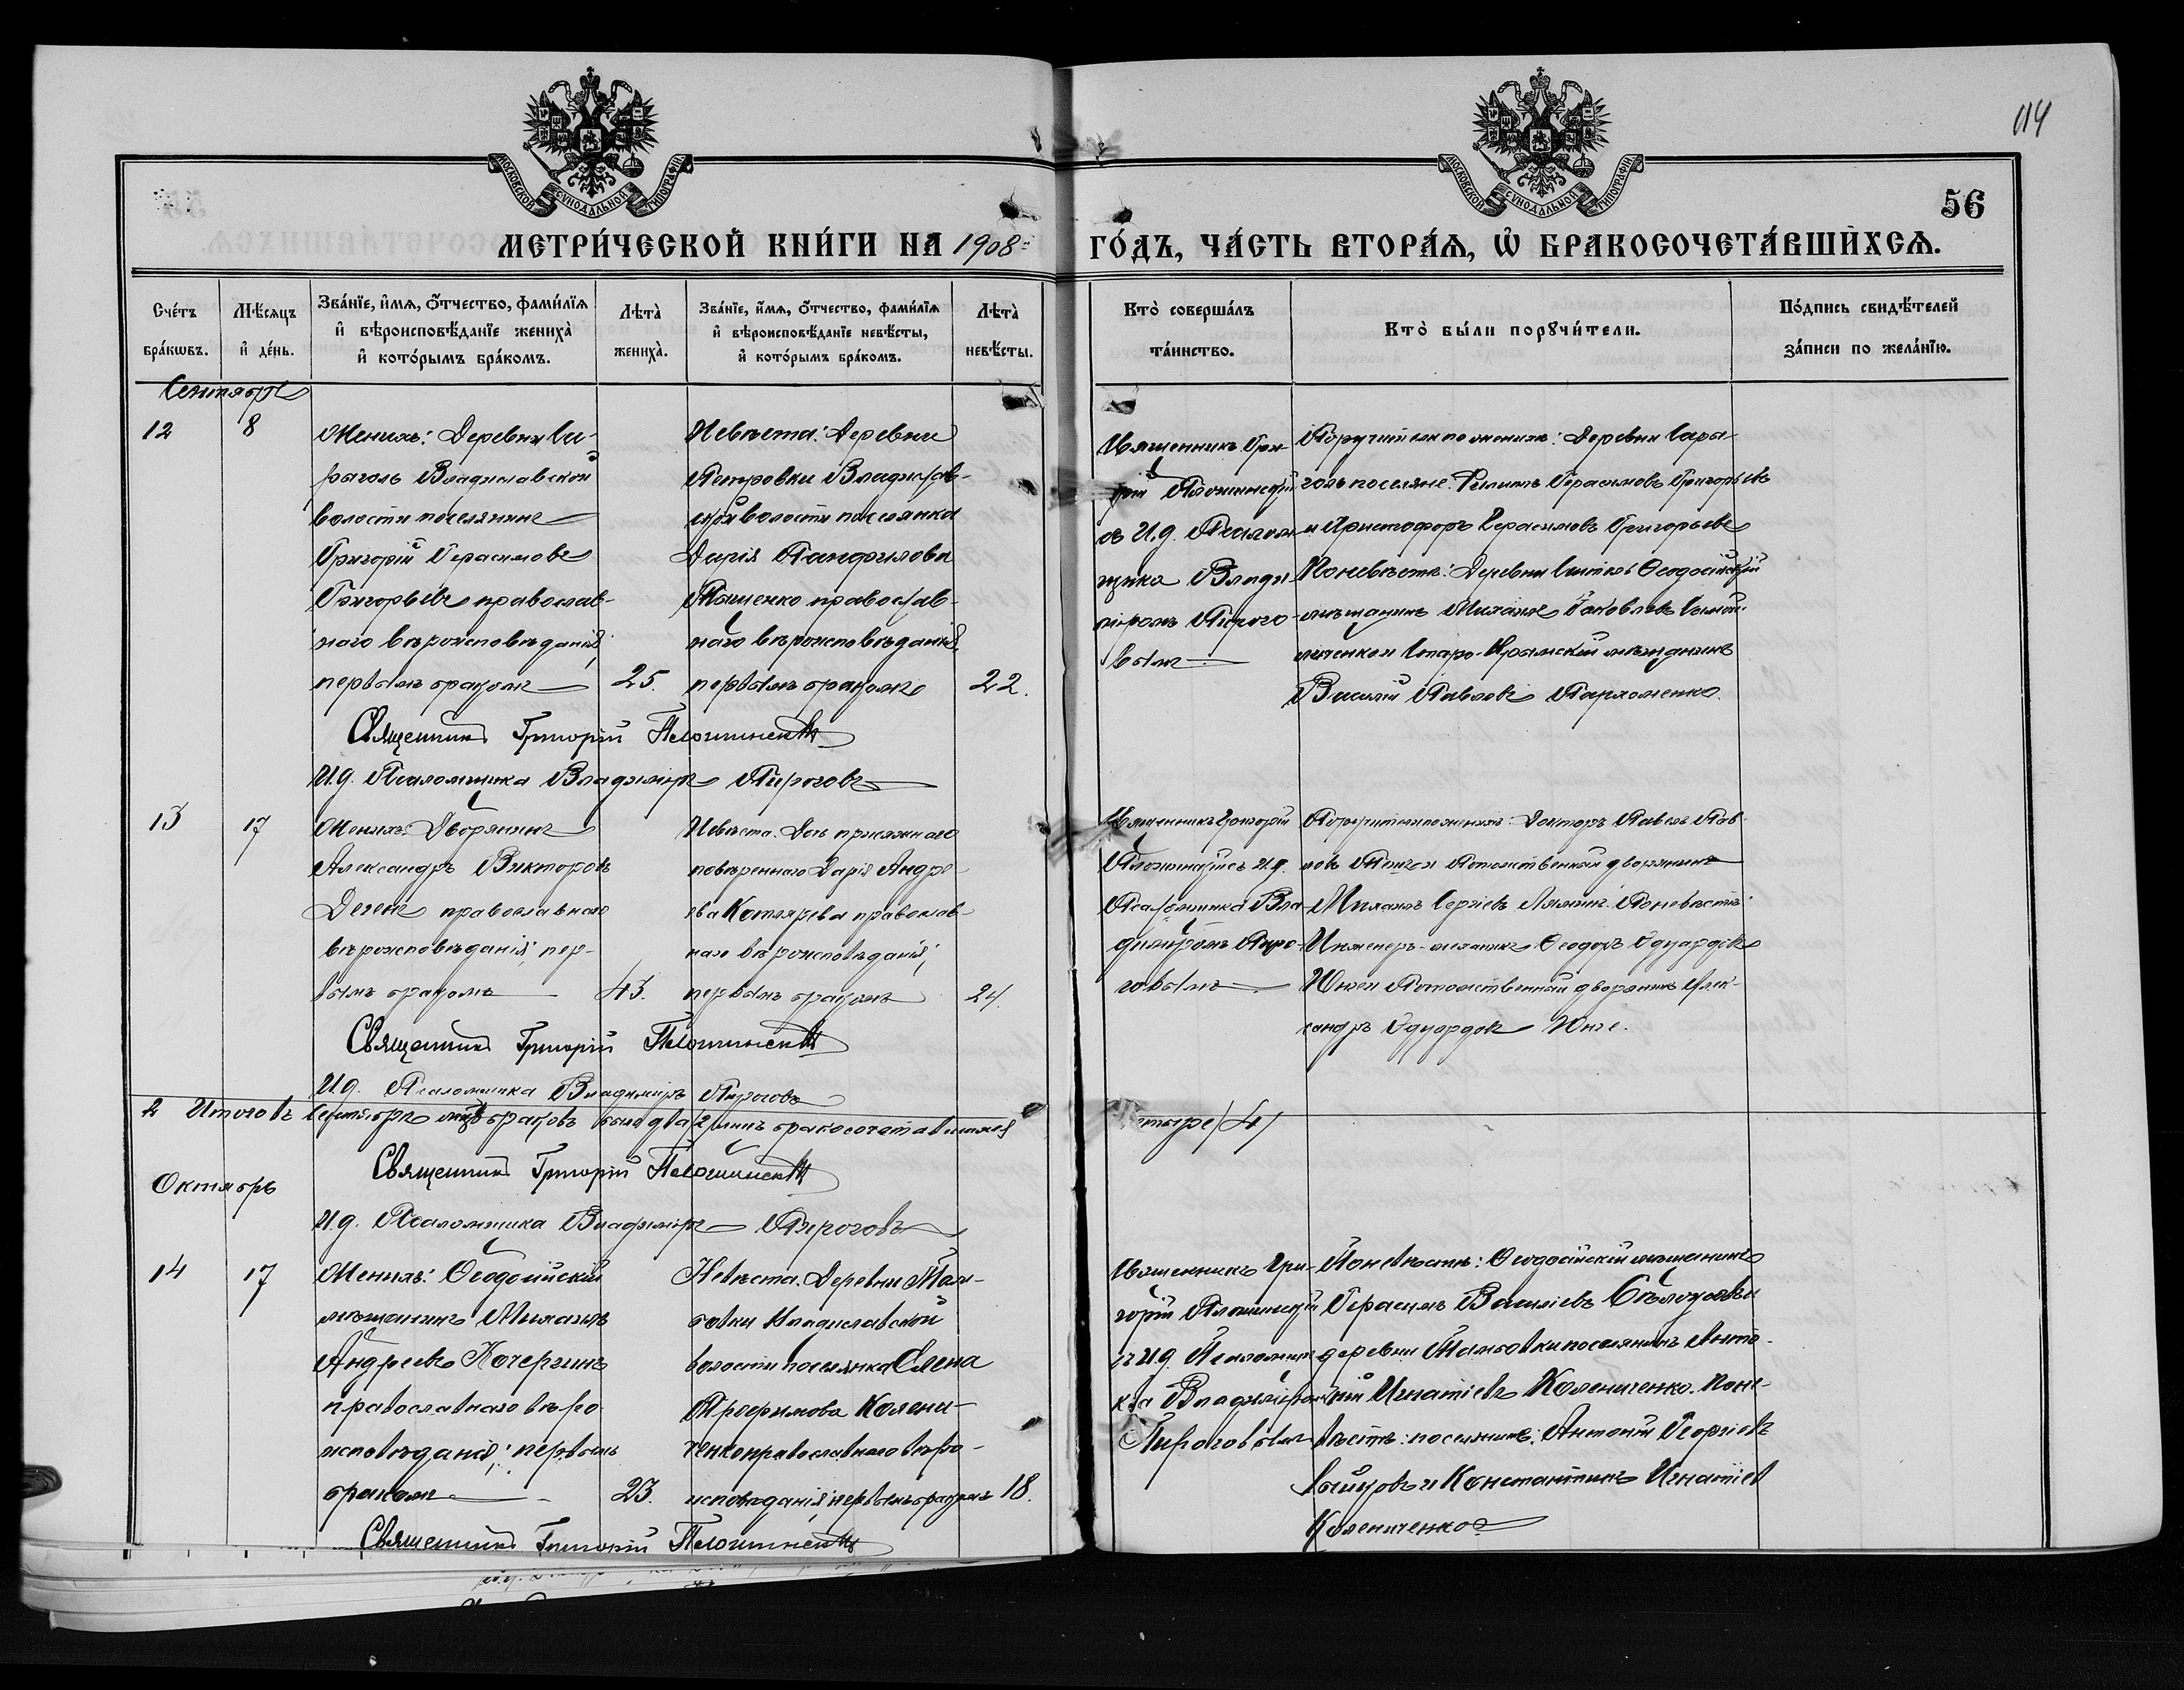 114
56
МОСКОВСКОЙ СѴНОДАЛЬНОЙ ТИПОГРАФІИ
МОСКОВСКОЙ СѴНОДАЛЬНОЙ ТИПОГРАФІИ
МЕТРИ́ЧЕСКОЙ КНИ́ГИ НА 1908 ГО́ДЪ, ЧА́СТЬ ВТОРА́Ѧ, Ѡ҆ БРАКОСОЧЕТА́ВШИХСѦ.
Сче́тъ бра́кѡвъ.
Мѣ́сяцъ и҆ де́нь.
Зва́нїе, и҆́мѧ, ѻ҆́тчество, фами́лїѧ и҆ вѣроисповѣ́данїе жениха̀ и҆ кото́рымъ бра́комъ.
Лѣта̀ жениха̀.
Зва́нїе, и҆́мѧ, ѻ҆́тчество, фами́лїѧ и҆ вѣроисповѣ́данїе невѣ́сты, и҆ кото́рымъ бра́комъ.
Лѣта̀ невѣ́сты.
Кто̀ соверша́лъ та́инство.
Кто̀ бы́ли порꙋчи́тели.
По́дпись свидѣ́телей за́писи по жела́нїю.
Сентябрь
12
8
Женихъ: Деревни Са-
раголь Владиславской
волости поселянинъ
Григорій Герасимовъ
Григорьевъ православ-
наго вѣроисповѣданія,
первымъ бракомъ
25.
Невѣста: Деревни
Петровки Владислав-
ской волости поселянка
Дарія Панфилова
православ-
наго вѣроисповѣданія,
первымъ бракомъ
22.
Священникъ Гри-
горій Плошинскій
съ И.д. Псаломщ-
щика Влади-
міромъ Пирого-
вымъ
Поручители по женихѣ: Деревни Сара-
голь поселяне: Филиппъ Герасимовъ Григорьевъ
и Христофоръ Герасимовъ Григорьевъ
По невѣстѣ: Деревни Өеодосійскій
мѣщанинъ Михаилъ Яковлевъ
и Старо-Крымскій мѣщанинъ
Василій Павловъ Пархоменко.
Священникъ Григорій Плошинскій
И.д. Псаломщика Владиміръ Пироговъ
13
17
Женихъ: Дворянинъ
Александръ Викторовъ
Деген православнаго
вѣроисповѣданія, пер-
вымъ бракомъ
43.
Невѣста. Дочь присяжнаго
повѣреннаго Дарія Андре-
ева Котлярева православ-
наго вѣроисповѣданія,
первымъ бракомъ
24.
Священникъ Григорій
Плошинскій съ и.д.
Псаломщика Вла-
диміромъ Пиро-
говымъ
Поручители по женихѣ: Докторъ Павелъ Пав-
ловъ и Потомственный дворянинъ
Михаилъ Сергіевъ Лямин. По невѣстѣ:
Инженеръ-механикъ Өеодоръ Эдуардовъ
Юнге и Потомственный дворянинъ Алек-
сандръ Эдуардовъ Юнге.
Священникъ Григорій Плошинскій
И.д. Псаломщика Владиміръ Пироговъ
2 Итого въ Сентябрѣ мцѣ браковъ было два /2/ лицъ бракосочетавшихся четыре /4/
Священникъ Григорій Плошинскій
И.д. Псаломщика Владиміръ Пироговъ
Октябрь
14
17
Женихъ: Өеодосійскій
мѣщанинъ Михаилъ
Андреевъ Кочергинъ
православнаго вѣро-
исповѣданія, первымъ
бракомъ
23.
Невѣста. Деревни Мам-
бовки Владиславской
волости поселянка Елена
Трофимова Колени-
ченко православнаго вѣро-
исповѣданія, первымъ бракомъ
18.
Священникъ Гри-
горій Плошинскій
съ И.д. Псаломщи-
ка Владиміромъ
Пироговымъ
По невѣстѣ: Өеодосійскій мѣщанинъ
Герасимъ Василіевъ и
деревни Мамбовки поселянинъ Анто-
ній Игнатіевъ Колениченко. По не-
вѣстѣ: поселянинъ: Антоній Георгіевъ
и Константинъ Игнатіев
Колениченко
Священникъ Григорій Плошинскій